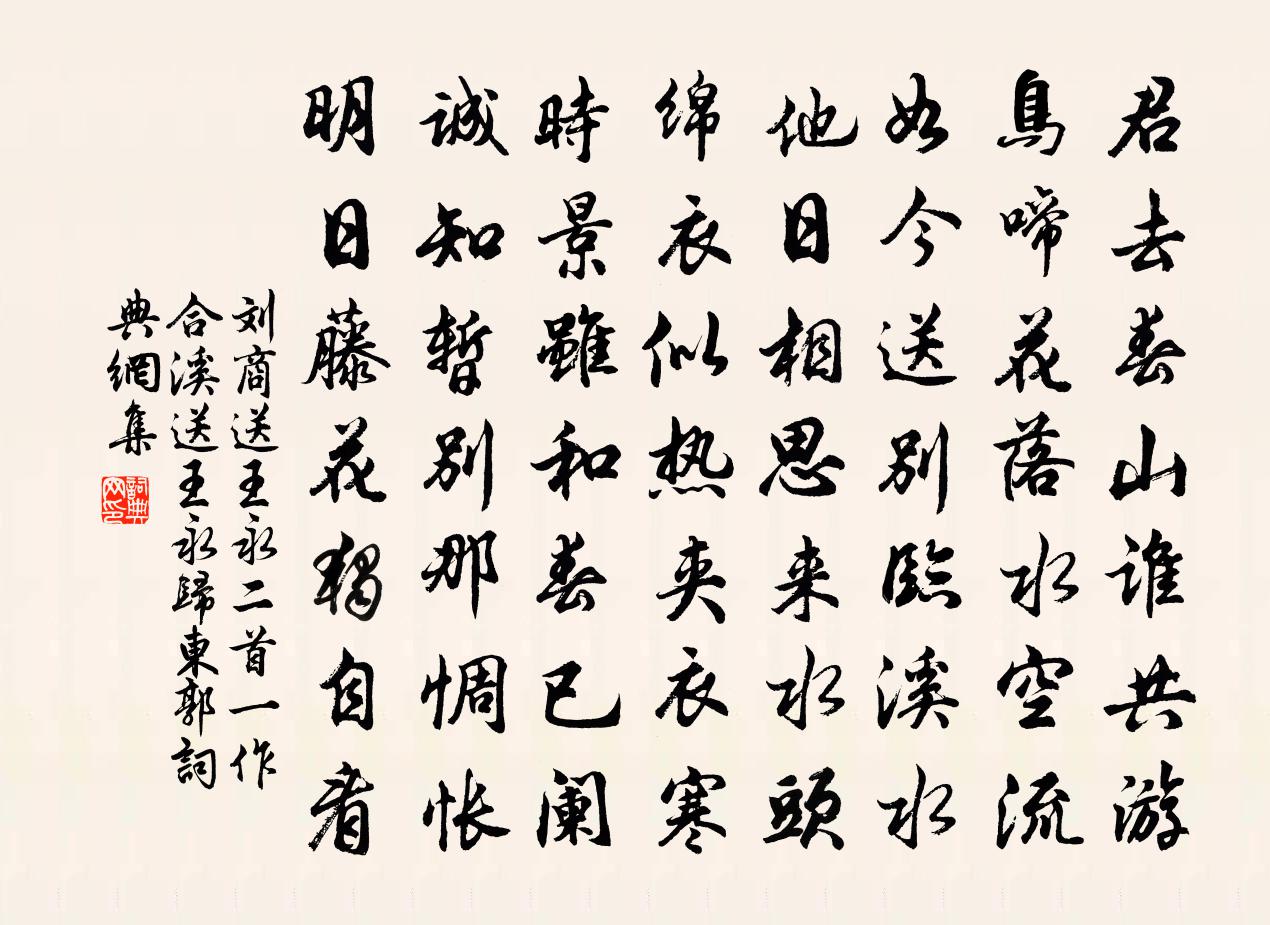 君去春山谁共游
鳥啼花落水空流
如今送别臨溪水
他日相思来水頭
绵衣似热夹衣寒
時景雖和春已阑
誠知暫别那惆怅
明日藤花独自看
刘商送王永二首一作
合溪送王永歸東郭詞
典網集
詞典
网印